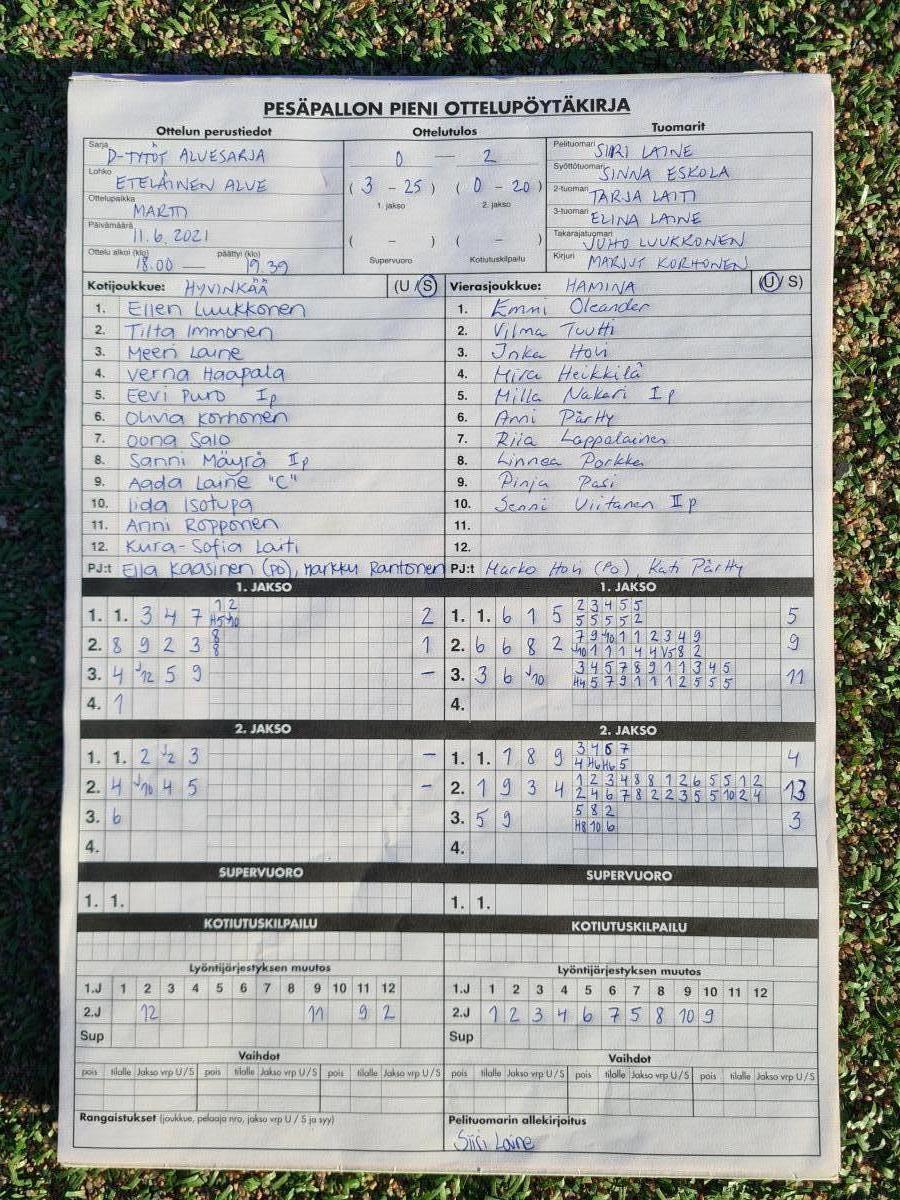 PESÄPALLON PIENI OTTELUPÖYTÄKIRJA
Ottelun perustiedot Ottelutulos Tuomarit
Sarja D-TYTÖT ALUESARJA
Lohko ETELÄINEN ALUE
Ottelupaikka MARTTI
Päivämäärä 11.6.2021
Ottelu alkoi (klo) päättyi (klo)
18.00 — 19.39
0 — 2
( 3 - 25 ) ( 0 - 20 )
1. jakso 2. jakso
( - ) ( - )
Supervuoro Kotiutuskilpailu
Pelituomari SIIRI LAINE
Syöttötuomari SINNA ESKOLA
2-tuomari TARJA LAITI
3-tuomari ELINA LAINE
Takarajatuomari JUHO LUUKKONEN
Kirjuri MARJUT KORHONEN
Kotijoukkue: HYVINKÄÄ (U/S)
1. Ellen Luukkonen
2. Tilta Immonen
3. Meeri Laine
4. Verna Haapala
5. Eevi Puro Ip
6. Olivia Korhonen
7. Oona Salo
8. Sanni Mäyrä IIp
9. Aada Laine "C"
10. Iida Isotupa
11. Anni Ropponen
12. Kura-Sofia Laiti
PJ:t Ella Kaasinen (PO), Markku Rantonen
Vierasjoukkue: HAMINA (U/S)
1. Emmi Oleander
2. Vilma Tuutti
3. Inka Hovi
4. Mira Heikkilä
5. Milla Nakari Ip
6. Anni Pärtty
7. Riia Lappalainen
8. Linnea Porkka
9. Pinja Pasi
10. Senni Viitanen IIp
11.
12.
PJ:t Marko Hovi (PO), Kati Pärtty
1. JAKSO
1. 1. 3 4 7 1 2 2
H5 J10
2. 8 9 2 3 8 1
8
3. 4 J12 5 9 –
4. 1
1. JAKSO
1. 1. 6 1 5 2 3 4 5 5 5
5 5 5 5 2
2. 6 6 8 2 7 9 J10 1 1 2 3 4 9 9
J10 1 1 1 4 4 V5 8 2
3. 3 6 J10 3 4 5 7 8 9 1 1 3 4 5 11
H4 5 7 9 1 1 1 2 5 5 5
4.
2. JAKSO
1. 1. 2 J2 3 –
2. 4 J10 4 5 –
3. 6
4.
2. JAKSO
1. 1. 1 8 9 3 4 6 7 4
4 H6 H6 5
2. 1 9 3 4 1 2 3 4 8 8 1 2 6 5 5 1 2 13
2 4 6 7 8 2 2 3 5 5 10 2 4
3. 5 9 5 8 2 3
H8 10 6
4.
SUPERVUORO
1. 1.
SUPERVUORO
1. 1.
KOTIUTUSKILPAILU
KOTIUTUSKILPAILU
Lyöntijärjestyksen muutos
1.J 1 2 3 4 5 6 7 8 9 10 11 12
2.J 12 11 9 2
Sup
Lyöntijärjestyksen muutos
1.J 1 2 3 4 5 6 7 8 9 10 11 12
2.J 1 2 3 4 6 7 5 8 10 9
Sup
Vaihdot
pois tilalle Jakso vrp U/S pois tilalle Jakso vrp U/S pois tilalle Jakso vrp U/S
Vaihdot
pois tilalle Jakso vrp U/S pois tilalle Jakso vrp U/S pois tilalle Jakso vrp U/S
Rangaistukset (joukkue, pelaaja nro, jakso vrp U / S ja syy)
Pelituomarin allekirjoitus
Siiri Laine